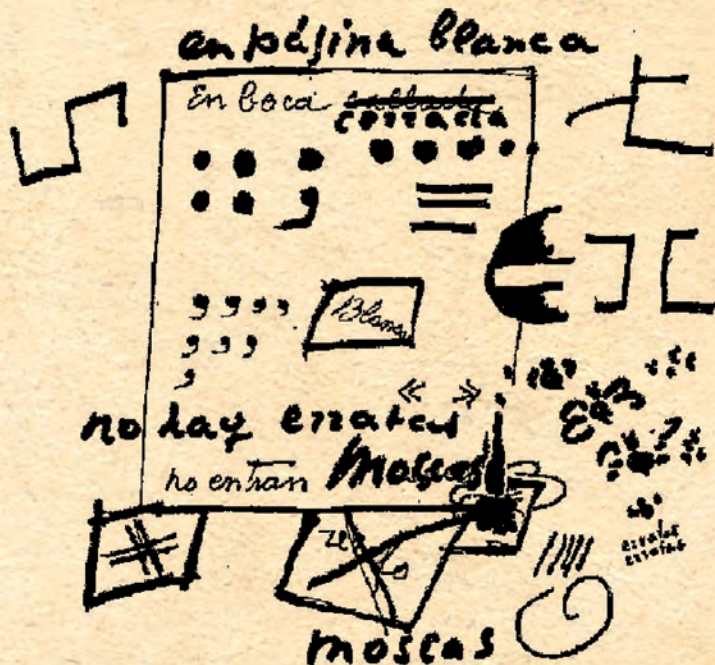 en página blanca
En boca callada
cerrada
Blanca
« »
no hay erratas
no entran moscas
erratas
erratas
moscas